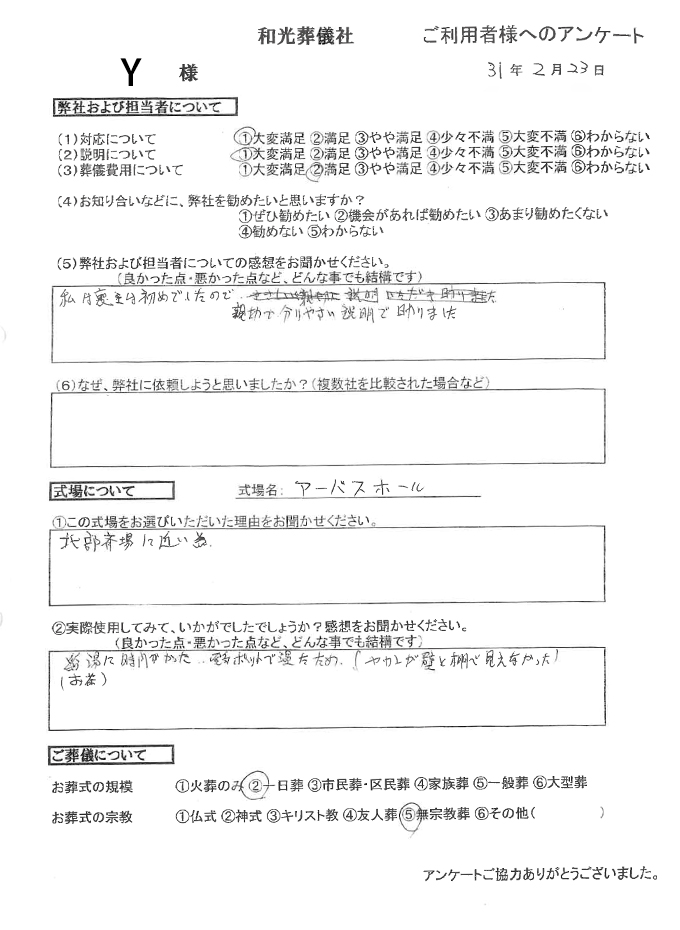 和光葬儀社 ご利用者様へのアンケート
Y 様 31年2月23日
弊社および担当者について
(1)対応について ①大変満足 ②満足 ③やや満足 ④少々不満 ⑤大変不満 ⑥わからない
(2)説明について ①大変満足 ②満足 ③やや満足 ④少々不満 ⑤大変不満 ⑥わからない
(3)葬儀費用について ①大変満足 ②満足 ③やや満足 ④少々不満 ⑤大変不満 ⑥わからない
(4)お知り合いなどに、弊社を勧めたいと思いますか?
①ぜひ勧めたい ②機会があれば勧めたい ③あまり勧めたくない
④勧めない ⑤わからない
(5)弊社および担当者についての感想をお聞かせください。
(良かった点・悪かった点など、どんな事でも結構です)
私は喪主は初めてでしたので、説明いただき助りました
親切で分りやすい説明で助りました
(6)なぜ、弊社に依頼しようと思いましたか?(複数社を比較された場合など)
式場について 式場名: アーバスホール
①この式場をお選びいただいた理由をお聞かせください。
斎場に近い為
②実際使用してみて、いかがでしたでしょうか?感想をお聞かせください。
(良かった点・悪かった点など、どんな事でも結構です)
湯に時間がかった 電気ポットで湯たため、(ヤカンが壁と棚で見えなかった)
(お茶)
ご葬儀について
お葬式の規模 ①火葬のみ ②一日葬 ③市民葬・区民葬 ④家族葬 ⑤一般葬 ⑥大型葬
お葬式の宗教 ①仏式 ②神式 ③キリスト教 ④友人葬 ⑤無宗教葬 ⑥その他( )
アンケートご協力ありがとうございました。